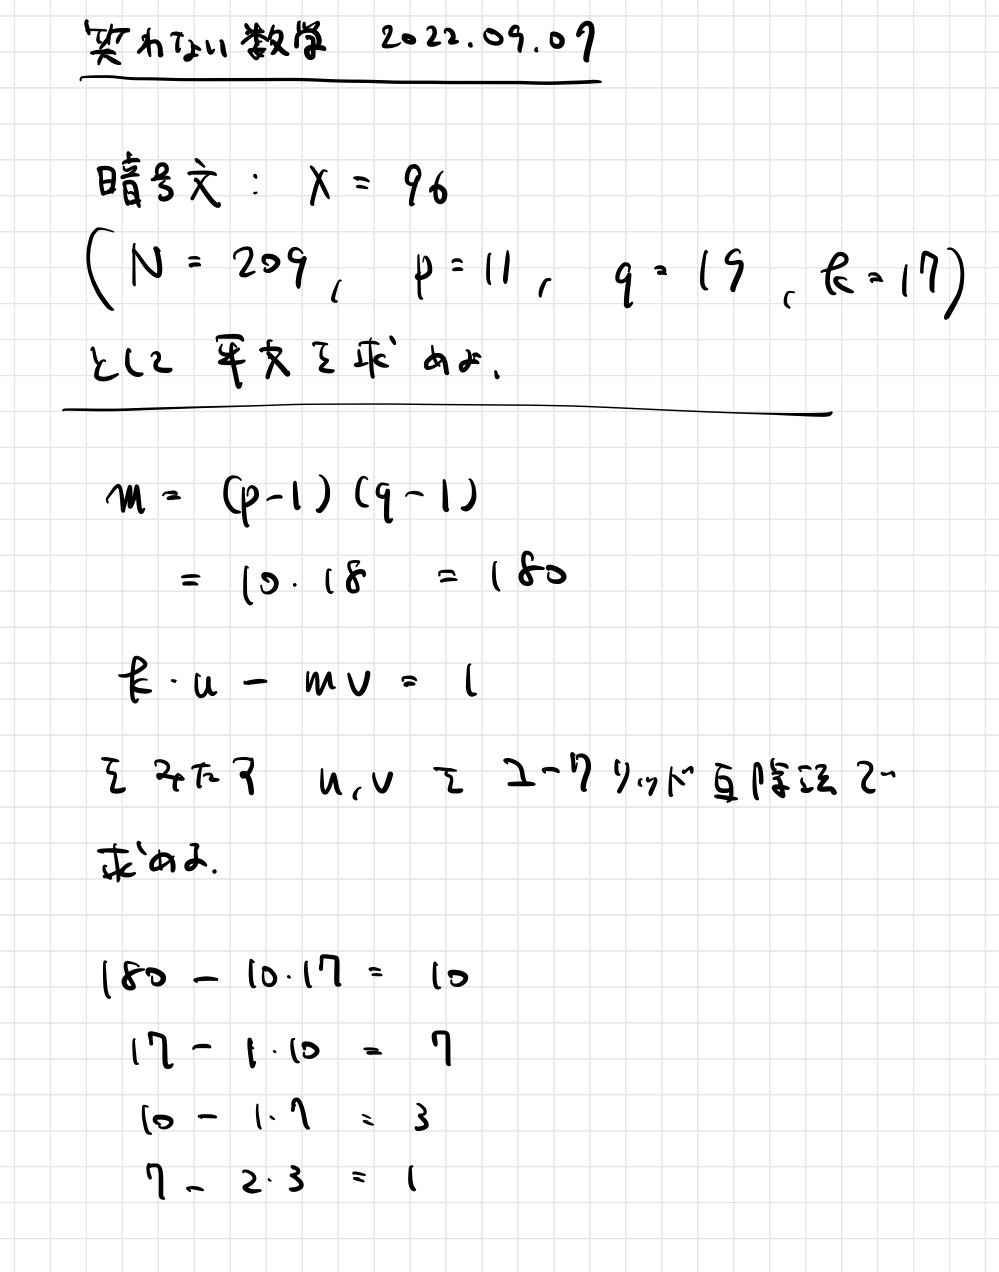 笑わない数学 2022.09.07
暗号文: X = 96
(N = 209, p = 11, q = 19, k = 17)
として平文を求めよ.
m = (p-1)(q-1)
= 10・18 = 180
k・u - mv = 1
をみたす u,v をユークリッド互除法で
求める.
180 - 10・17 = 10
17 - 1・10 = 7
10 - 1・7 = 3
7 - 2・3 = 1